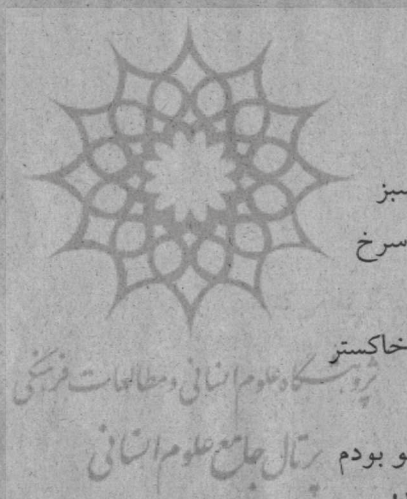 سبز
سرخ
خاکستر
پژوهشگاه علوم انسانی و مطالعات فرهنگی
و بودم
پرتال جامع علوم انسانی